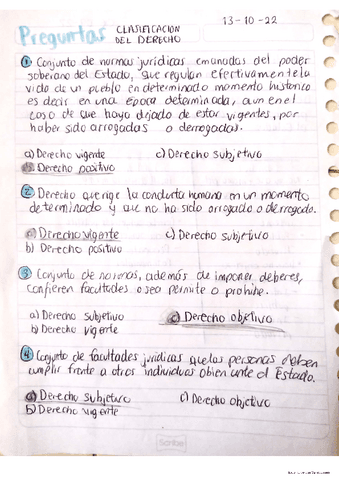 Preguntas
CLASIFICACION
DEL DERECHO
13-10-22
① Conjunto de normas jurídicas emanadas del poder
soberano del Estado, que regulan efectivamente la
vida de un pueblo en determinado momento historico
es decir en una epoca determinada, aun en el
caso de que haya dejado de estar vigentes, por
haber sido arrogadas o derrogadas.
a) Derecho vigente c) Derecho subjetivo
b) Derecho positivo
② Derecho que rige la conducta humana en un momento
determinado y que no ha sido arrogado o derrogado.
a) Derecho vigente c) Derecho subjetivo
b) Derecho positivo
③ Conjunto de normas, además de imponer deberes,
confieren facultades o sea permite o prohibe.
a) Derecho subjetivo c) Derecho objetivo
b) Derecho vigente
④ Conjunto de facultades jurídicas que las personas deben
cumplir frente a otros individuos o bien ante el Estado.
a) Derecho subjetivo c) Derecho objetivo
b) Derecho vigente
Scribe